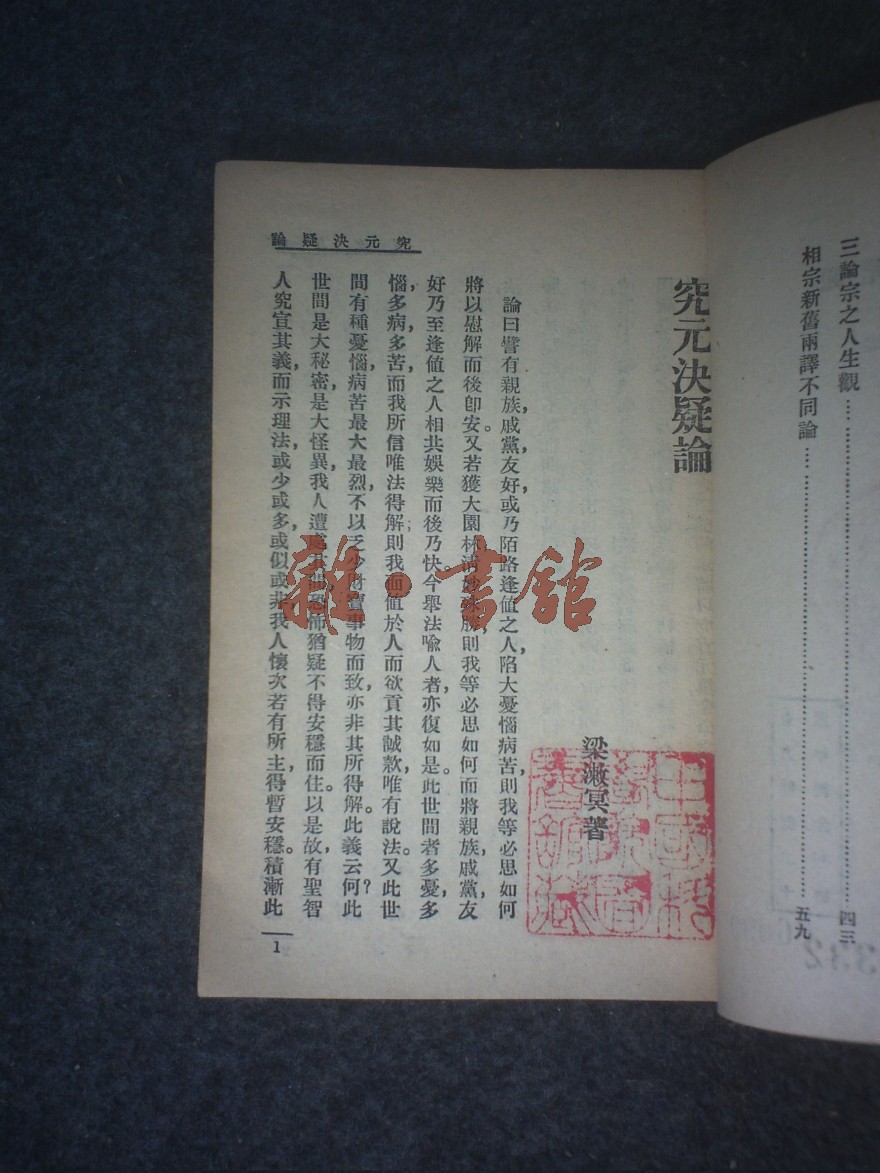 三論宗之人生觀……四三
相宗新舊兩譯不同論……五九
究元決疑論
梁漱冥著
論曰譬有親族,戚黨友好或乃陌路逢值之人,陷大憂惱病苦,則我等必思如何
將以慰解而後卽安。又若獲大園林清妙殊勝,則我等必思如何而將親族,戚黨,友
好乃至逢值之人相共娛樂而後乃快。今舉法喩人者,亦復如是。此世間者多憂,多
惱,多病,多苦,而我所信唯法得解,則我面值於人而欲貢其誠款,唯有說法。又此世
間有種憂惱,病苦最大最烈,不以乏少財寶事物而致,亦非其所得解。此義云何?此
世間是大秘密,是大怪異,我人遭處其間,恐怖猶疑不得安穩而住。以是故,有聖智
人究宣其義,而示理法,或少或多,或似或非,我人懷次若有所主,得暫安穩。積漸此
究元決疑論
1
雜·書館